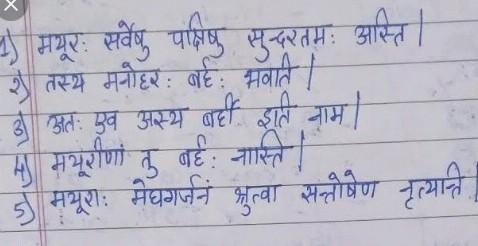 1) मयूरः सर्वेषु पक्षिषु सुन्दरतमः अस्ति |
2) तस्य मनोहरः बर्हः भवति |
3) अतः एव अस्य बर्ही इति नाम |
4) मयूरीणां तु बर्हः नास्ति |
5) मयूराः मेघगर्जनं श्रुत्वा सन्तोषेण नृत्यन्ति |